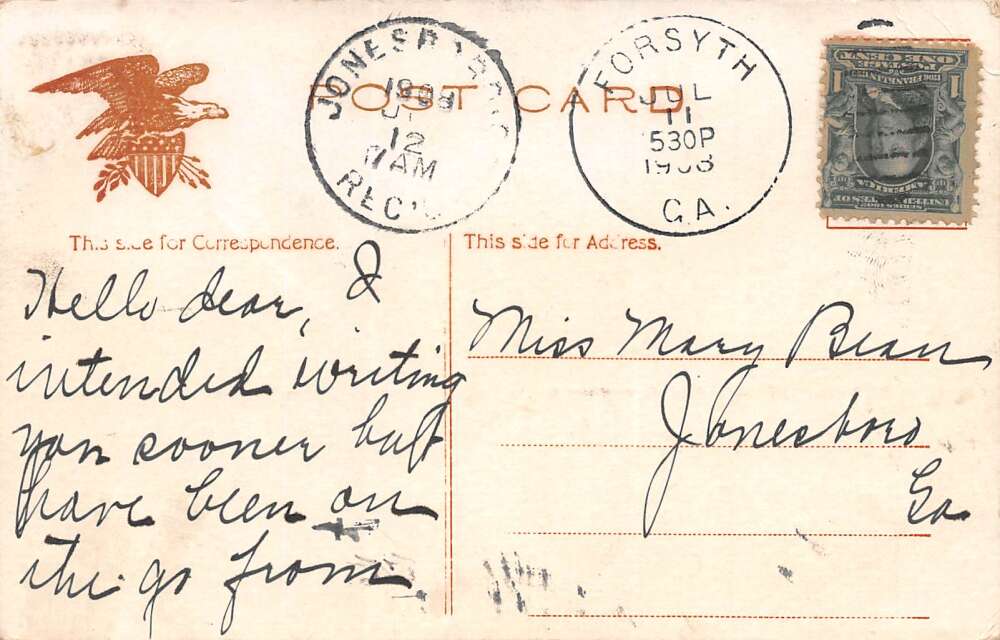 POST CARD
JONESB
1908
12
7 AM
REC'D
FORSYTH
JUL
11
530P
1908
GA.
POSTAGE ONE CENT
1
1
FRANKLIN
SERIES 1902
UNITED STATES OF AMERICA
This side for Correspondence.
This side for Address.
Hello dear, I
intended writing
you sooner but
have been on
the go from
Miss Mary Bean
Jonesboro
Ga